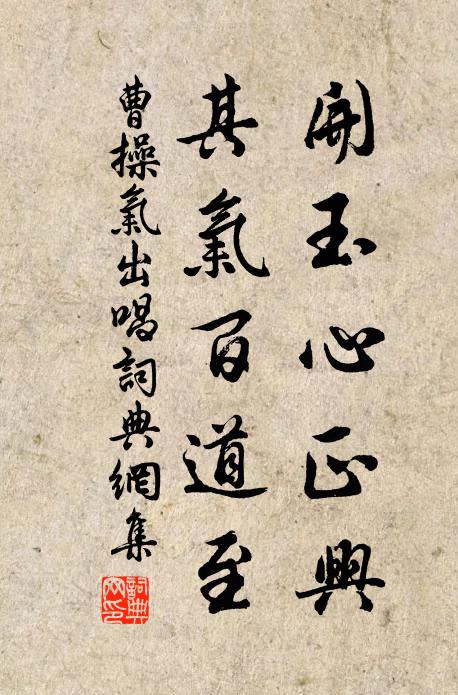 開玉心正興
其氣百道至
曹操氣出唱詞典網集
詞典網印